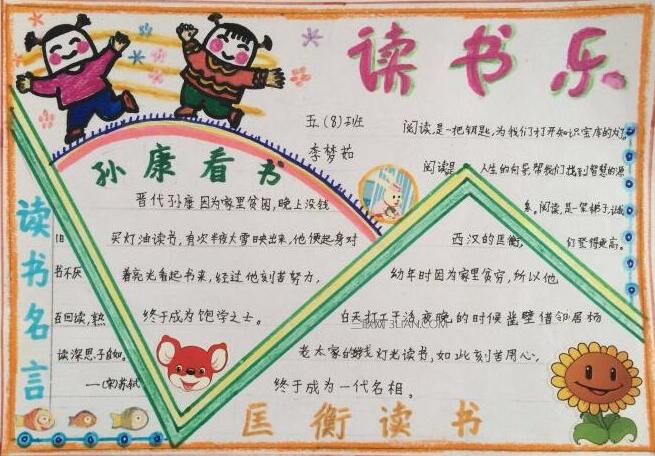 读书乐
五(8)班
李梦茹
阅读,是一把钥匙,为我们打开知识宝库的大门
阅读是 人生的向导,帮我们找到智慧的源
泉。阅读,是一架梯子,让我
们登得更高。
孙康看书
晋代孙康因为家里贫困,晚上没钱
买灯油读书,有次半夜大雪映出来,他便起身对
着亮光看起书来,经过他刻苦努力,
终于成为饱学之士。
读书名言
旧
书不厌
百回读,熟
读深思子自知。
—(宋)苏轼
西汉的匡衡,
幼年时因为家里贫穷,所以他
白天打工干活,夜晚的时候凿壁借邻居杨
老太家的灯光读书,如此刻苦用心,
终于成为一代名相。
匡衡读书